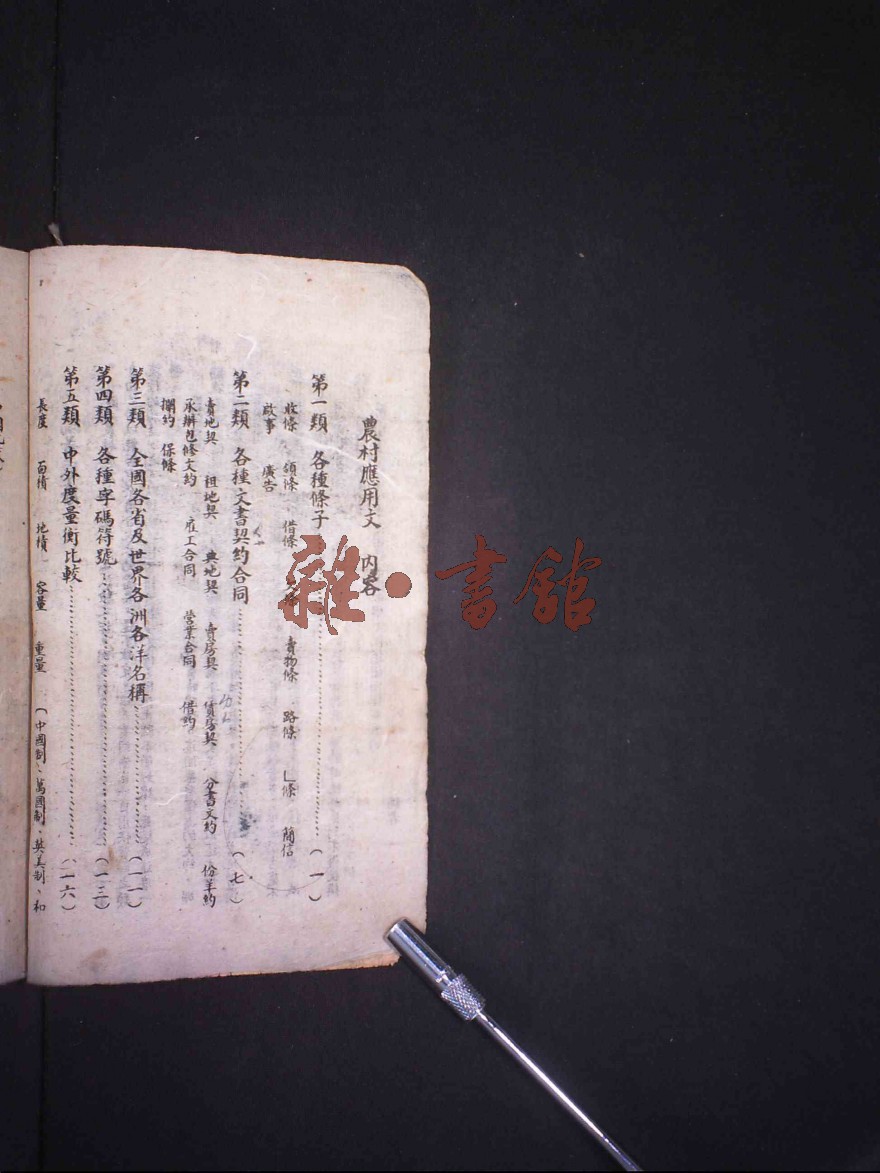 農村應用文 內容
第一類 各種條子………(一)
收條 領條 借條 賣物條 路條 條 簡信
啟事 廣告
第二類 各種文書契約合同………(七)
賣地契 租地契 典地契 賣房契 賃房契 分書文約 份羊約
承辦包修文約 雇工合同 營業合同 借約
攔約 保條
第三類 全國各省及世界各洲各洋名稱………(一一)
第四類 各種字碼符號………(一三)
第五類 中外度量衡比較………(一六)
長度 面積 地積 容量 重量 (中國制、萬國制、英美制、和
雜·書館